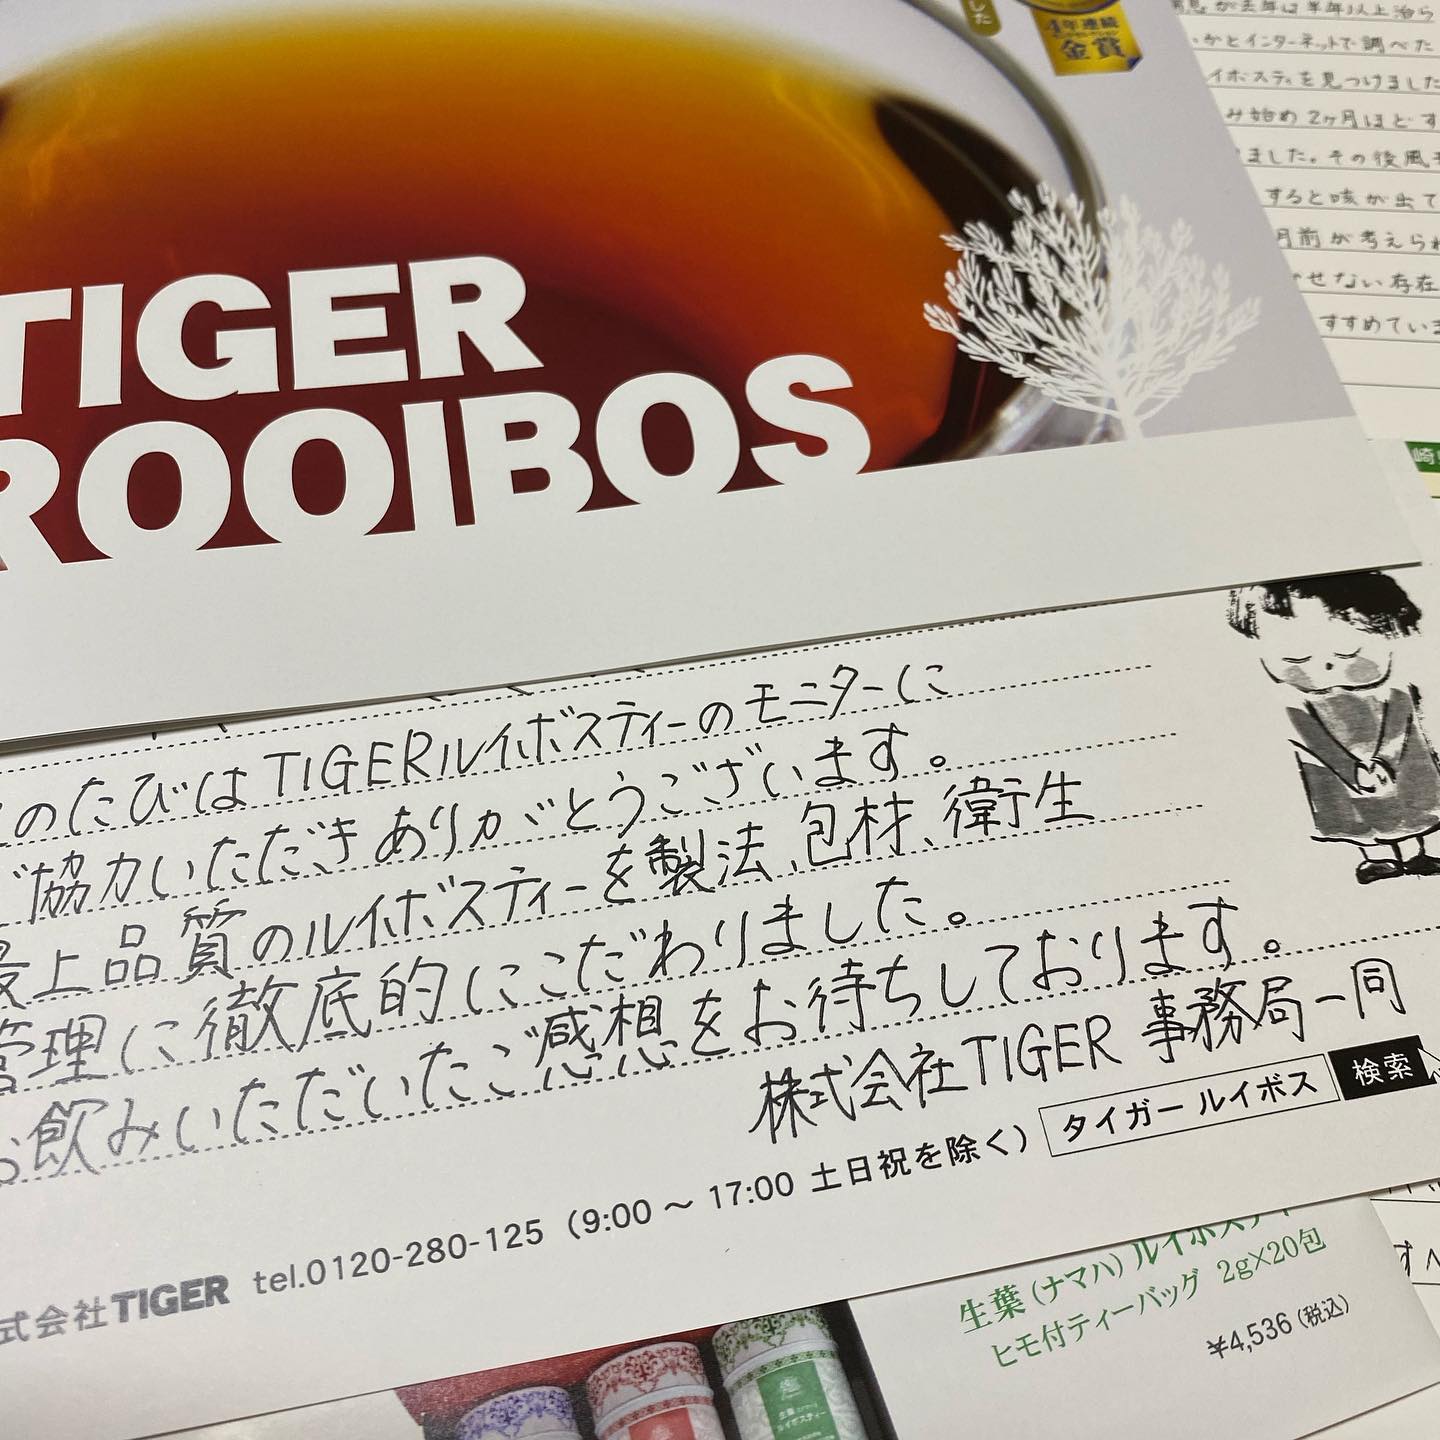 した
4年連続
金賞
息が去年は半年以上治ら
いかとインターネットで調べた
イボスティを見つけました
み始め2ヶ月ほどす
ました。その後風
すると咳が出て
月前が考えられ
かせない存在
すすめていま
TIGER
ROOIBOS
崎
このたびはTIGERルイボスティーのモニターに
ご協力いただきありがとうございます。
最上品質のルイボスティーを製法、包材、衛生
管理に徹底的にこだわりました。
お飲みいただいたご感想をお待ちしております。
株式会社TIGER 事務局一同
タイガー ルイボス 検索
式会社TIGER tel.0120-280-125 (9:00 ～ 17:00 土日祝を除く)
生葉(ナマハ)ルイボスティ
ヒモ付ティーバッグ 2g×20包
¥4,536(税込)
生葉
ルイボスティー